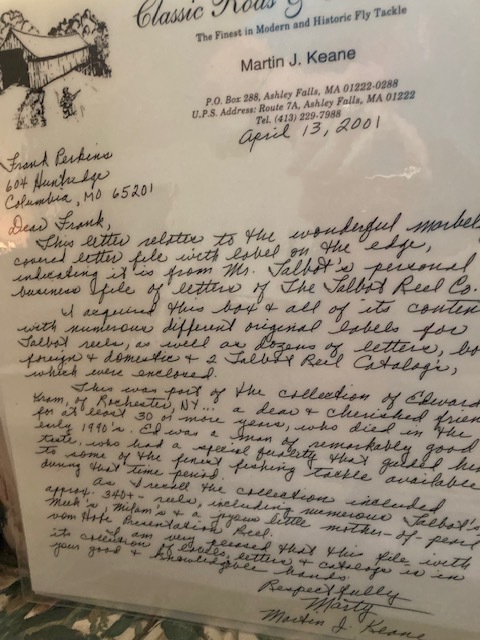 Classic Rods &
The Finest in Modern and Historic Fly Tackle
Martin J. Keane
P.O. Box 288, Ashley Falls, MA 01222-0288
U.P.S. Address: Route 7A, Ashley Falls, MA 01222
Tel. (413) 229-7988
April 13, 2001
Frank Perkins
604 Huntridge
Columbia, MO 65201
Dear Frank,
This letter relates to the wonderful marbel
covered letter file with label on the edge,
indicating it is from Mr. Talbot's personal
business file of letters of The Talbot Reel Co.
I acquired this box & all of its conten
with numerous different original labels for
Talbot reels, as well as dozens of letters, bo
foreign & domestic & 2 Talbot Reel Catalogs,
which were enclosed.
This was part of the collection of Edward
Kram, of Rochester, NY... a dear & cherished frien
for at least 30 or more years, who died in the
early 1990's. Ed was a man of remarkably good
taste, who had a special quality that guided him
to some of the finest fishing tackle available
during that time period.
As I recall the collection included
approx. 340+ reels, including numerous Talbot's
Meek's, Milam's & a little mother-of-pearl
vom Hofe Presentation Reel.
I am very pleased that this file with
its collection of labels, letters & catalogs is in
your good & knowledgeable hands.
Respectfully
Marty
Martin J. Keane